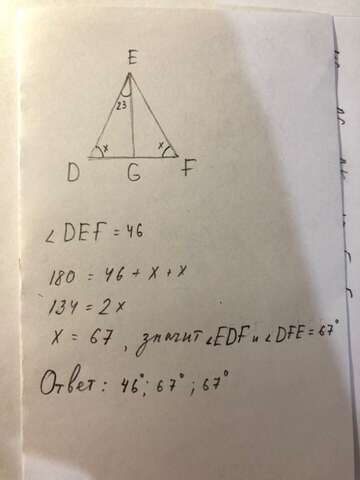 E
23
x x
D G F
∠DEF = 46
180 = 46 + x + x
134 = 2x
x = 67, значит ∠EDF и ∠DFE = 67°
Ответ: 46°; 67°; 67°